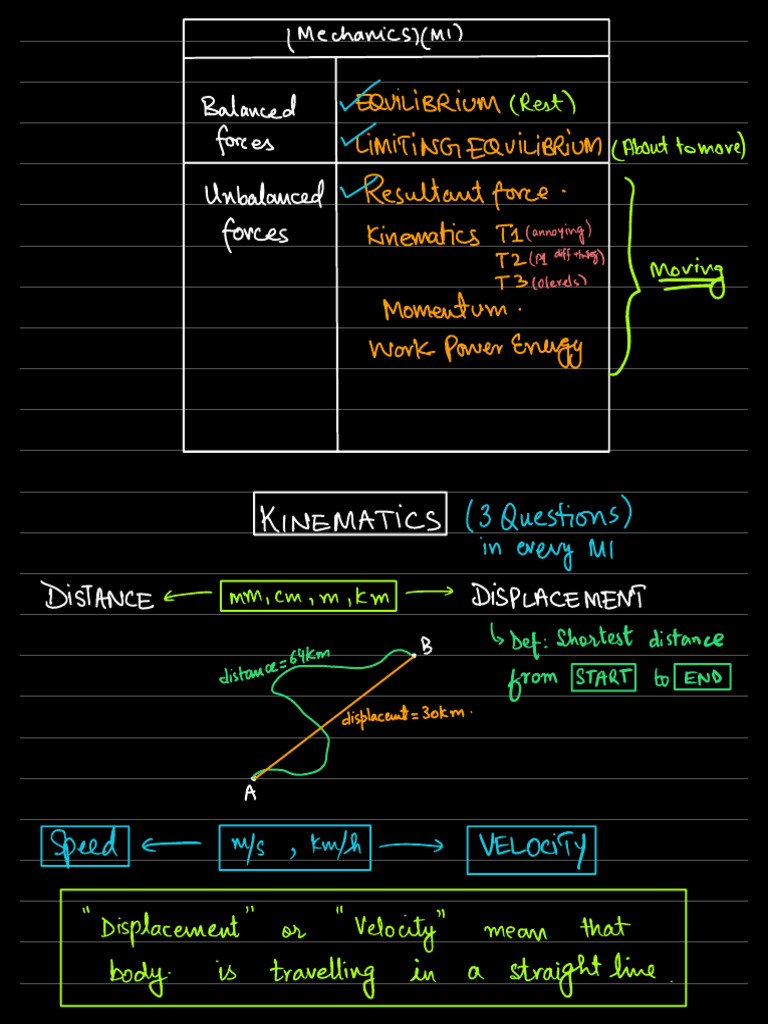 (Mechanics)(M1)
Balanced forces
EQUILIBRIUM (Rest)
LIMITING EQUILIBRIUM (About to move)
Unbalanced forces
Resultant force.
Kinematics T1 (annoying)
T2 (P1 diff + Integ)
T3 (Olevels)
Momentum.
Work Power Energy
Moving
KINEMATICS (3 Questions)
in every M1
DISTANCE ← mm, cm, m, km → DISPLACEMENT
↳ Def: Shortest distance
from START to END
distance = 64km
B
displacemt = 30km.
A
Speed ← m/s, km/h → VELOCITY
"Displacement" or "Velocity" mean that
body. is travelling in a straight line.